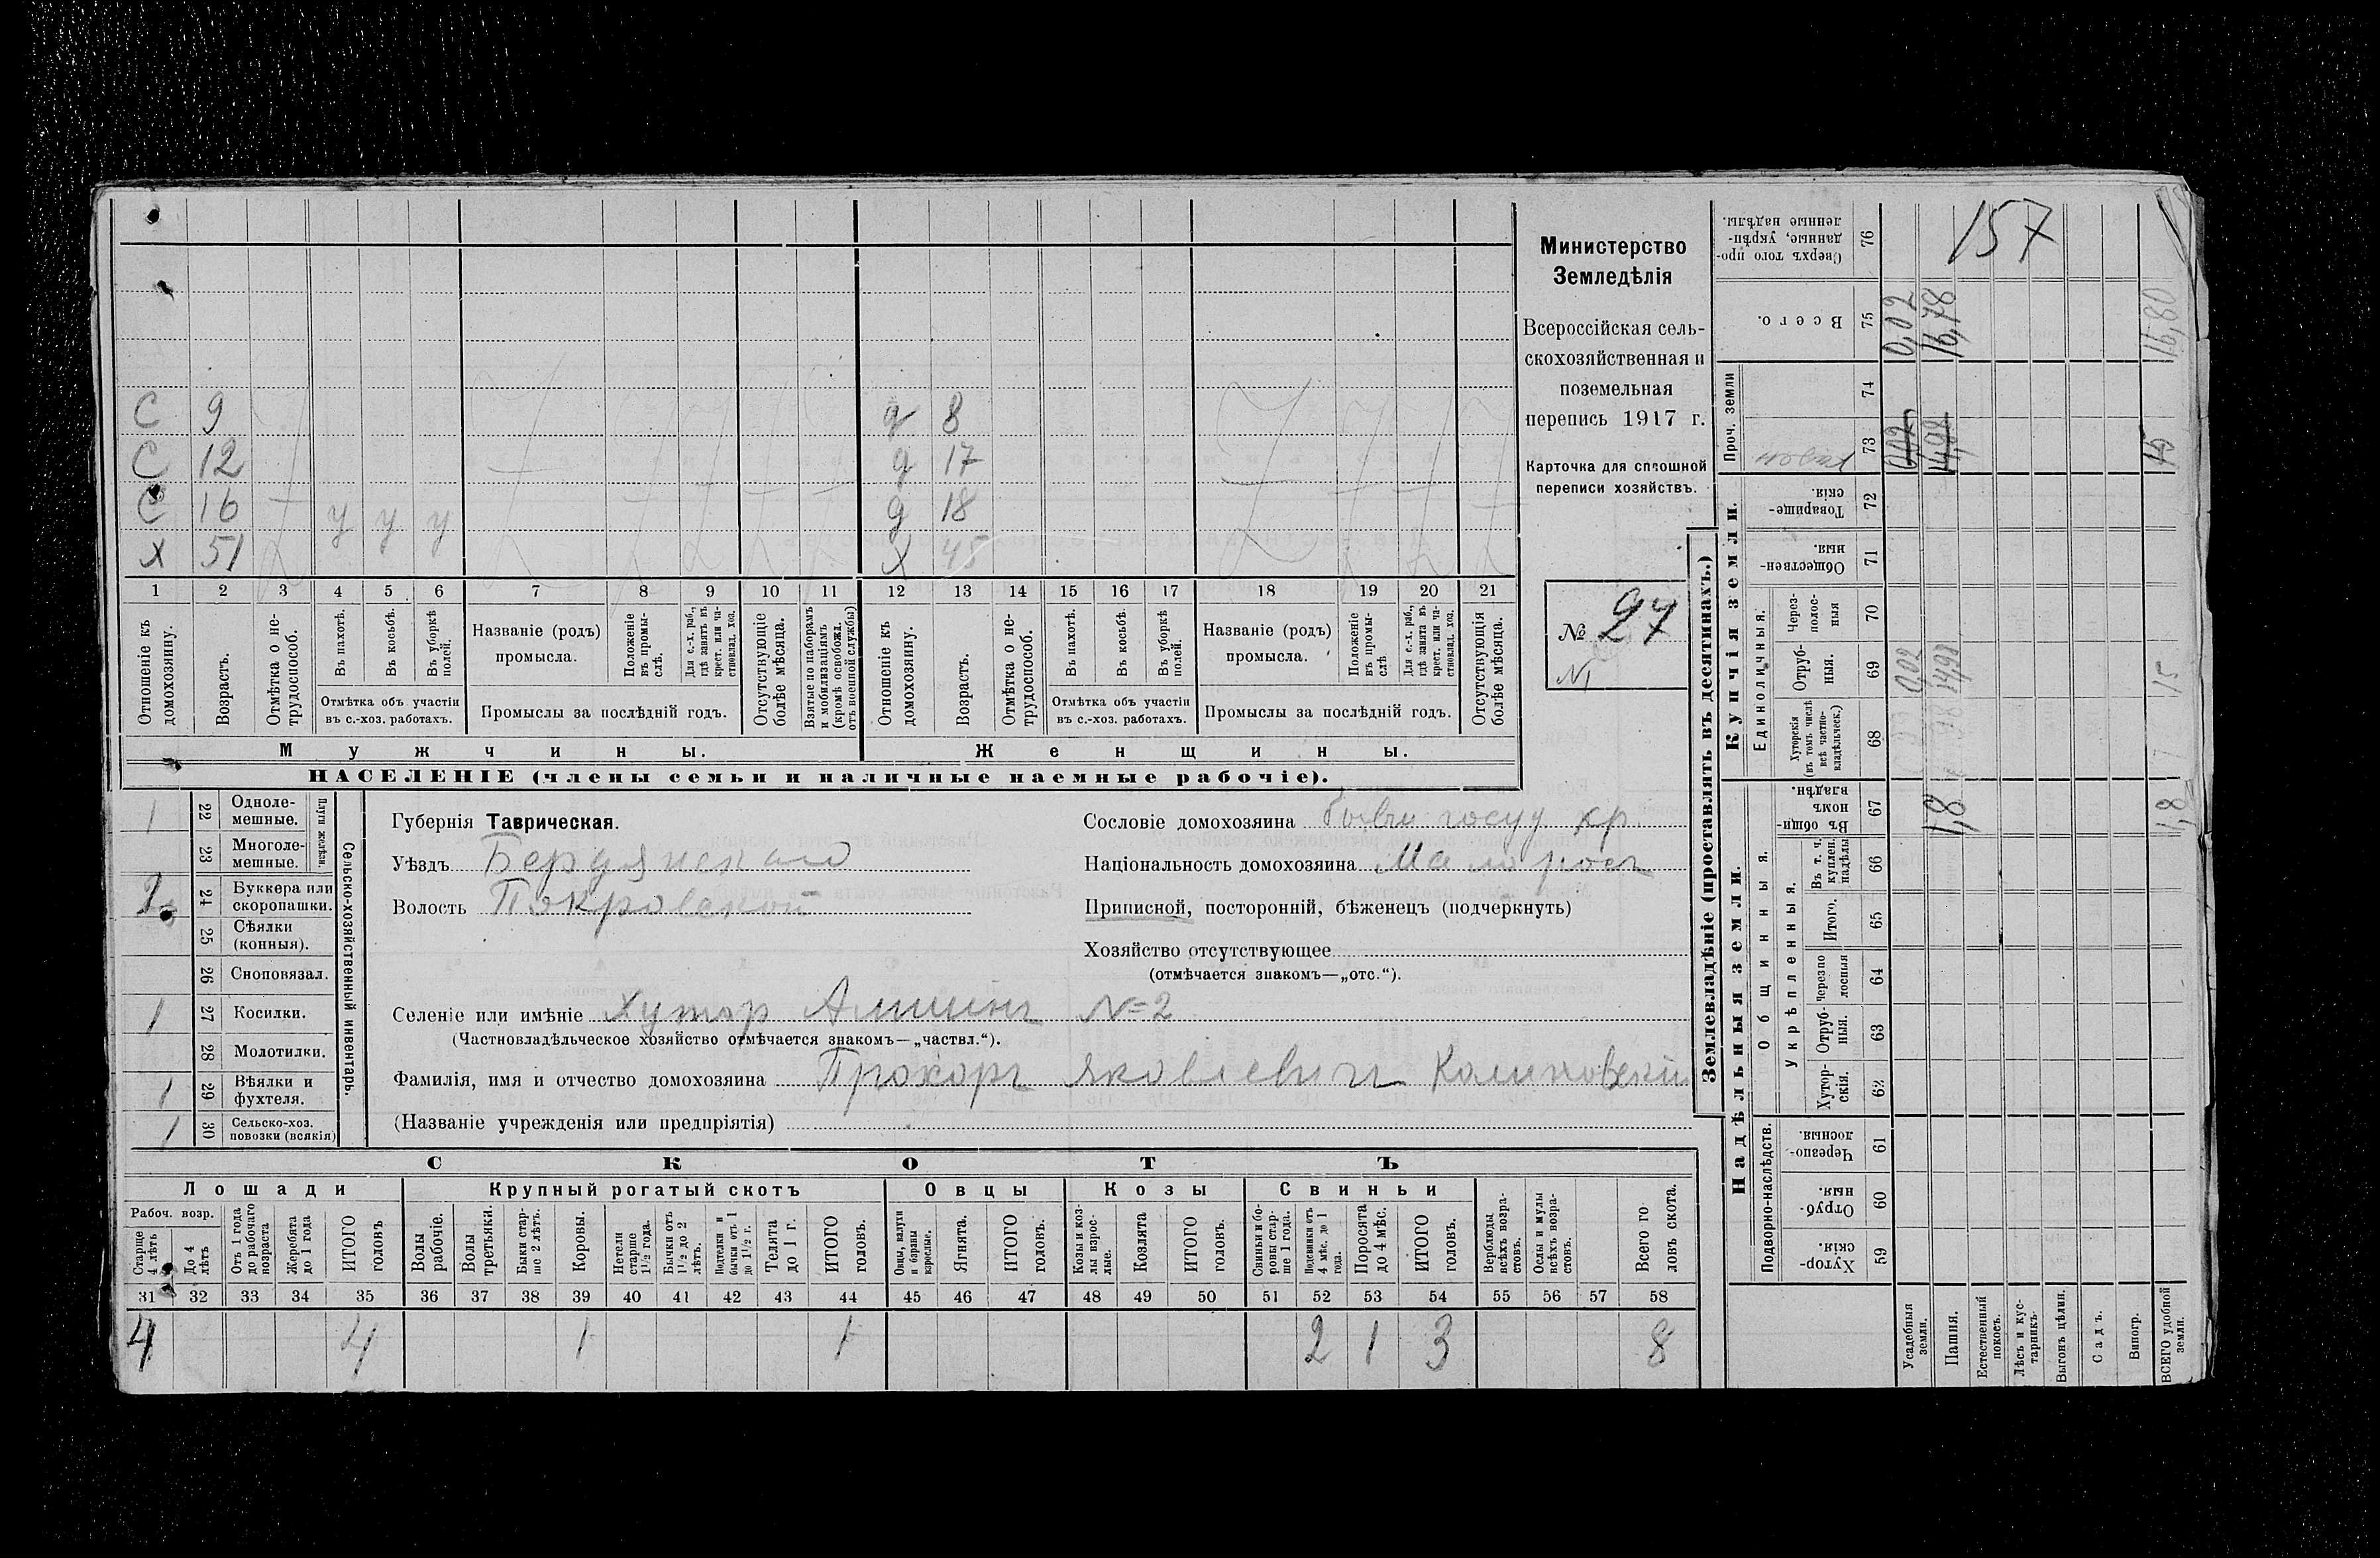 С 9 д 8
С 12 д 17
С 16 у у у д 18
Х 51 Х 45
1 2 3 4 5 6 7 8 9 10 11 12 13 14 15 16 17 18 19 20 21
Отношеніе къ домохозяину.
Возрастъ.
Отмѣтка о не-трудоспособ.
Въ пахотѣ.
Въ косьбѣ.
Въ уборкѣ полей.
Отмѣтка объ участіи
въ с.-хоз. работахъ.
Названіе (родъ)
промысла.
Положеніе въ промы-слѣ.
Для с.-х. раб., гдѣ занятъ въ крест. или ча-стновлад. хоз.
Промыслы за послѣдній годъ.
Отсутствующіе болѣе мѣсяца.
Взятые по наборамъ и мобилизаціямъ (кромѣ освобожд. отъ военной службы)
Отношеніе къ домохозяину.
Возрастъ.
Отмѣтка о не-трудоспособ.
Въ пахотѣ.
Въ косьбѣ.
Въ уборкѣ полей.
Отмѣтка объ участіи
въ с.-хоз. работахъ.
Названіе (родъ)
промысла.
Положеніе въ промы-слѣ
Для с.-х. раб., гдѣ занята въ крест. или ча-стновлад. хоз.
Промыслы за послѣдній годъ.
Отсутствующія болѣе мѣсяца.
Мужчины.
Женщины.
НАСЕЛЕНІЕ (члены семьи и наличные наемные рабочіе).
Министерство
Земледѣлія
Всероссійская сель-
скохозяйственная и
поземельная
перепись 1917 г.
Карточка для сплошной
переписи хозяйствъ.
№ 27
Сельско-хозяйственный инвентарь.
Плуги желѣзн.
1 22 Одноле-
мешные.
23 Многоле-
мешные.
24 Буккера или
скоропашки.
25 Сѣялки
(конныя).
26 Сноповязал.
1 27 Косилки.
28 Молотилки.
1 29 Вѣялки и
фухтеля.
1 30 Сельско-хоз.
повозки (всякія)
Губернія Таврическая.
Уѣздъ Бердянскаго
Волость Покровской
Сословіе домохозяина бывш госуд кр.
Національность домохозяина Малоросъ
Приписной, посторонній, бѣженецъ (подчеркнуть)
Хозяйство отсутствующее
(отмѣчается знакомъ—„отс.“).
Селеніе или имѣніе Хуторъ № 2
(Частновладѣльческое хозяйство отмѣчается знакомъ—„частвл.“).
Фамилія, имя и отчество домохозяина Прохоръ Яковлевичъ Калиновскій
(Названіе учрежденія или предпріятія)
СКОТЪ
Лошади
Крупный рогатый скотъ
Овцы
Козы
Свиньи
Рабоч. возр.
Старше 4 лѣтъ
До 4 лѣтъ
Отъ 1 года до рабочаго возраста
Жеребята до 1 года
ИТОГО головъ
Волы рабочіе.
Волы третьяки.
Быки стар-ше 2 лѣтъ.
Коровы.
Нетели старше 1½ года.
Бычки отъ 1½ до 2 лѣтъ.
Подтелки и бычки отъ 1 до 1½ г.
Телята до 1 г.
ИТОГО головъ.
Овцы, валухи и бараны взрослые.
Ягнята.
ИТОГО головъ.
Козы и коз-лы взрос-лые.
Козлята
ИТОГО головъ.
Свиньи и бо-ровы стар-ше 1 года.
Подсвинки отъ 4 мѣс. до 1 года.
Поросята до 4 мѣс.
ИТОГО головъ.
Верблюды всѣхъ возра-стовъ.
Ослы и мулы всѣхъ возра-стовъ.
Всего го ловъ скота.
31 32 33 34 35 36 37 38 39 40 41 42 43 44 45 46 47 48 49 50 51 52 53 54 55 56 57 58
4 4 1 1 2 1 3 8
Землевладѣніе (проставлять въ десятинахъ.)
Надѣльныя земли.
Купчія земли.
Проч. земли
Подворно-наслѣдств.
Общинныя.
Укрѣпленныя.
Единоличныя.
Хутор-скія. 59
Отруб-ныя. 60
Черезпо-лосныя. 61
Хутор-скія. 62
Отруб-ныя. 63
Черезпо лосныя 64
Итого. 65
Въ т. ч. куплен. надѣлы 66
Въ общи-номъ владѣн. 67
Хуторскія (въ томъ числѣ всѣ частно-владѣльческ.) 68
Отруб-ныя. 69
Через-полос-ныя 70
Обществен-ныя. 71
Товарище-скія. 72
73
74
Всего. 75
Сверхъ того про-данные, укрѣп-ленные надѣлы. 76
Усадебныя земли.
Пашня.
Естественный покосъ.
Лѣсъ и кус-тарникъ.
Выгонъ цѣлин.
Садъ.
Виногр.
ВСЕГО удобной земли.
157
0,02
16,78
16,80
0,02
14,98
15
0,02
14,98
15
1,8
1,8